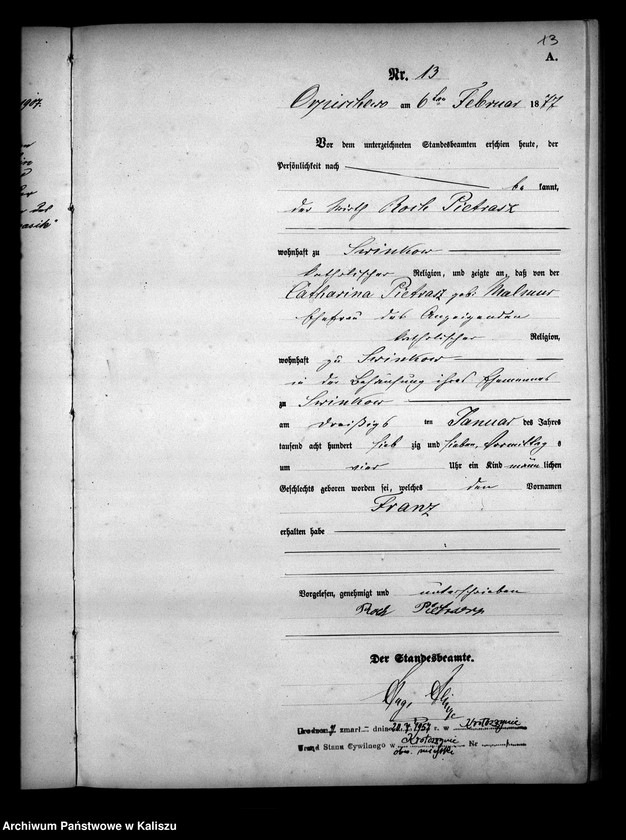 1907.
13
A.
Nr. 13
Orpischewo am 6ten Februar 1877
Vor dem unterzeichneten Standesbeamten erschien heute, der
Persönlichkeit nach
be kannt,
der Wirth Roch Pietrasz
wohnhaft zu Swinkow
katholischer Religion, und zeigte an, daß von der
Catharina Pietrasz geb. Malmur
Ehefrau des Anzeigenden
katholischer Religion,
wohnhaft zu Swinkow
in der Behausung ihres Ehemannes
zu Swinkow
am dreißigs ten Januar des Jahres
tausend acht hundert sieb zig und sieben, Vormittag s
um vier Uhr ein Kind männ lichen
Geschlechts geboren worden sei, welches den Vornamen
Franz
erhalten habe
Vorgelesen, genehmigt und unterschrieben
Roch Pietrasz
Der Standesbeamte.
zmarł dnia 20.7.1957 r. w Krotoszynie
Urząd Stanu Cywilnego w Krotoszynie Nr
obw. miejski
Archiwum Państwowe w Kaliszu